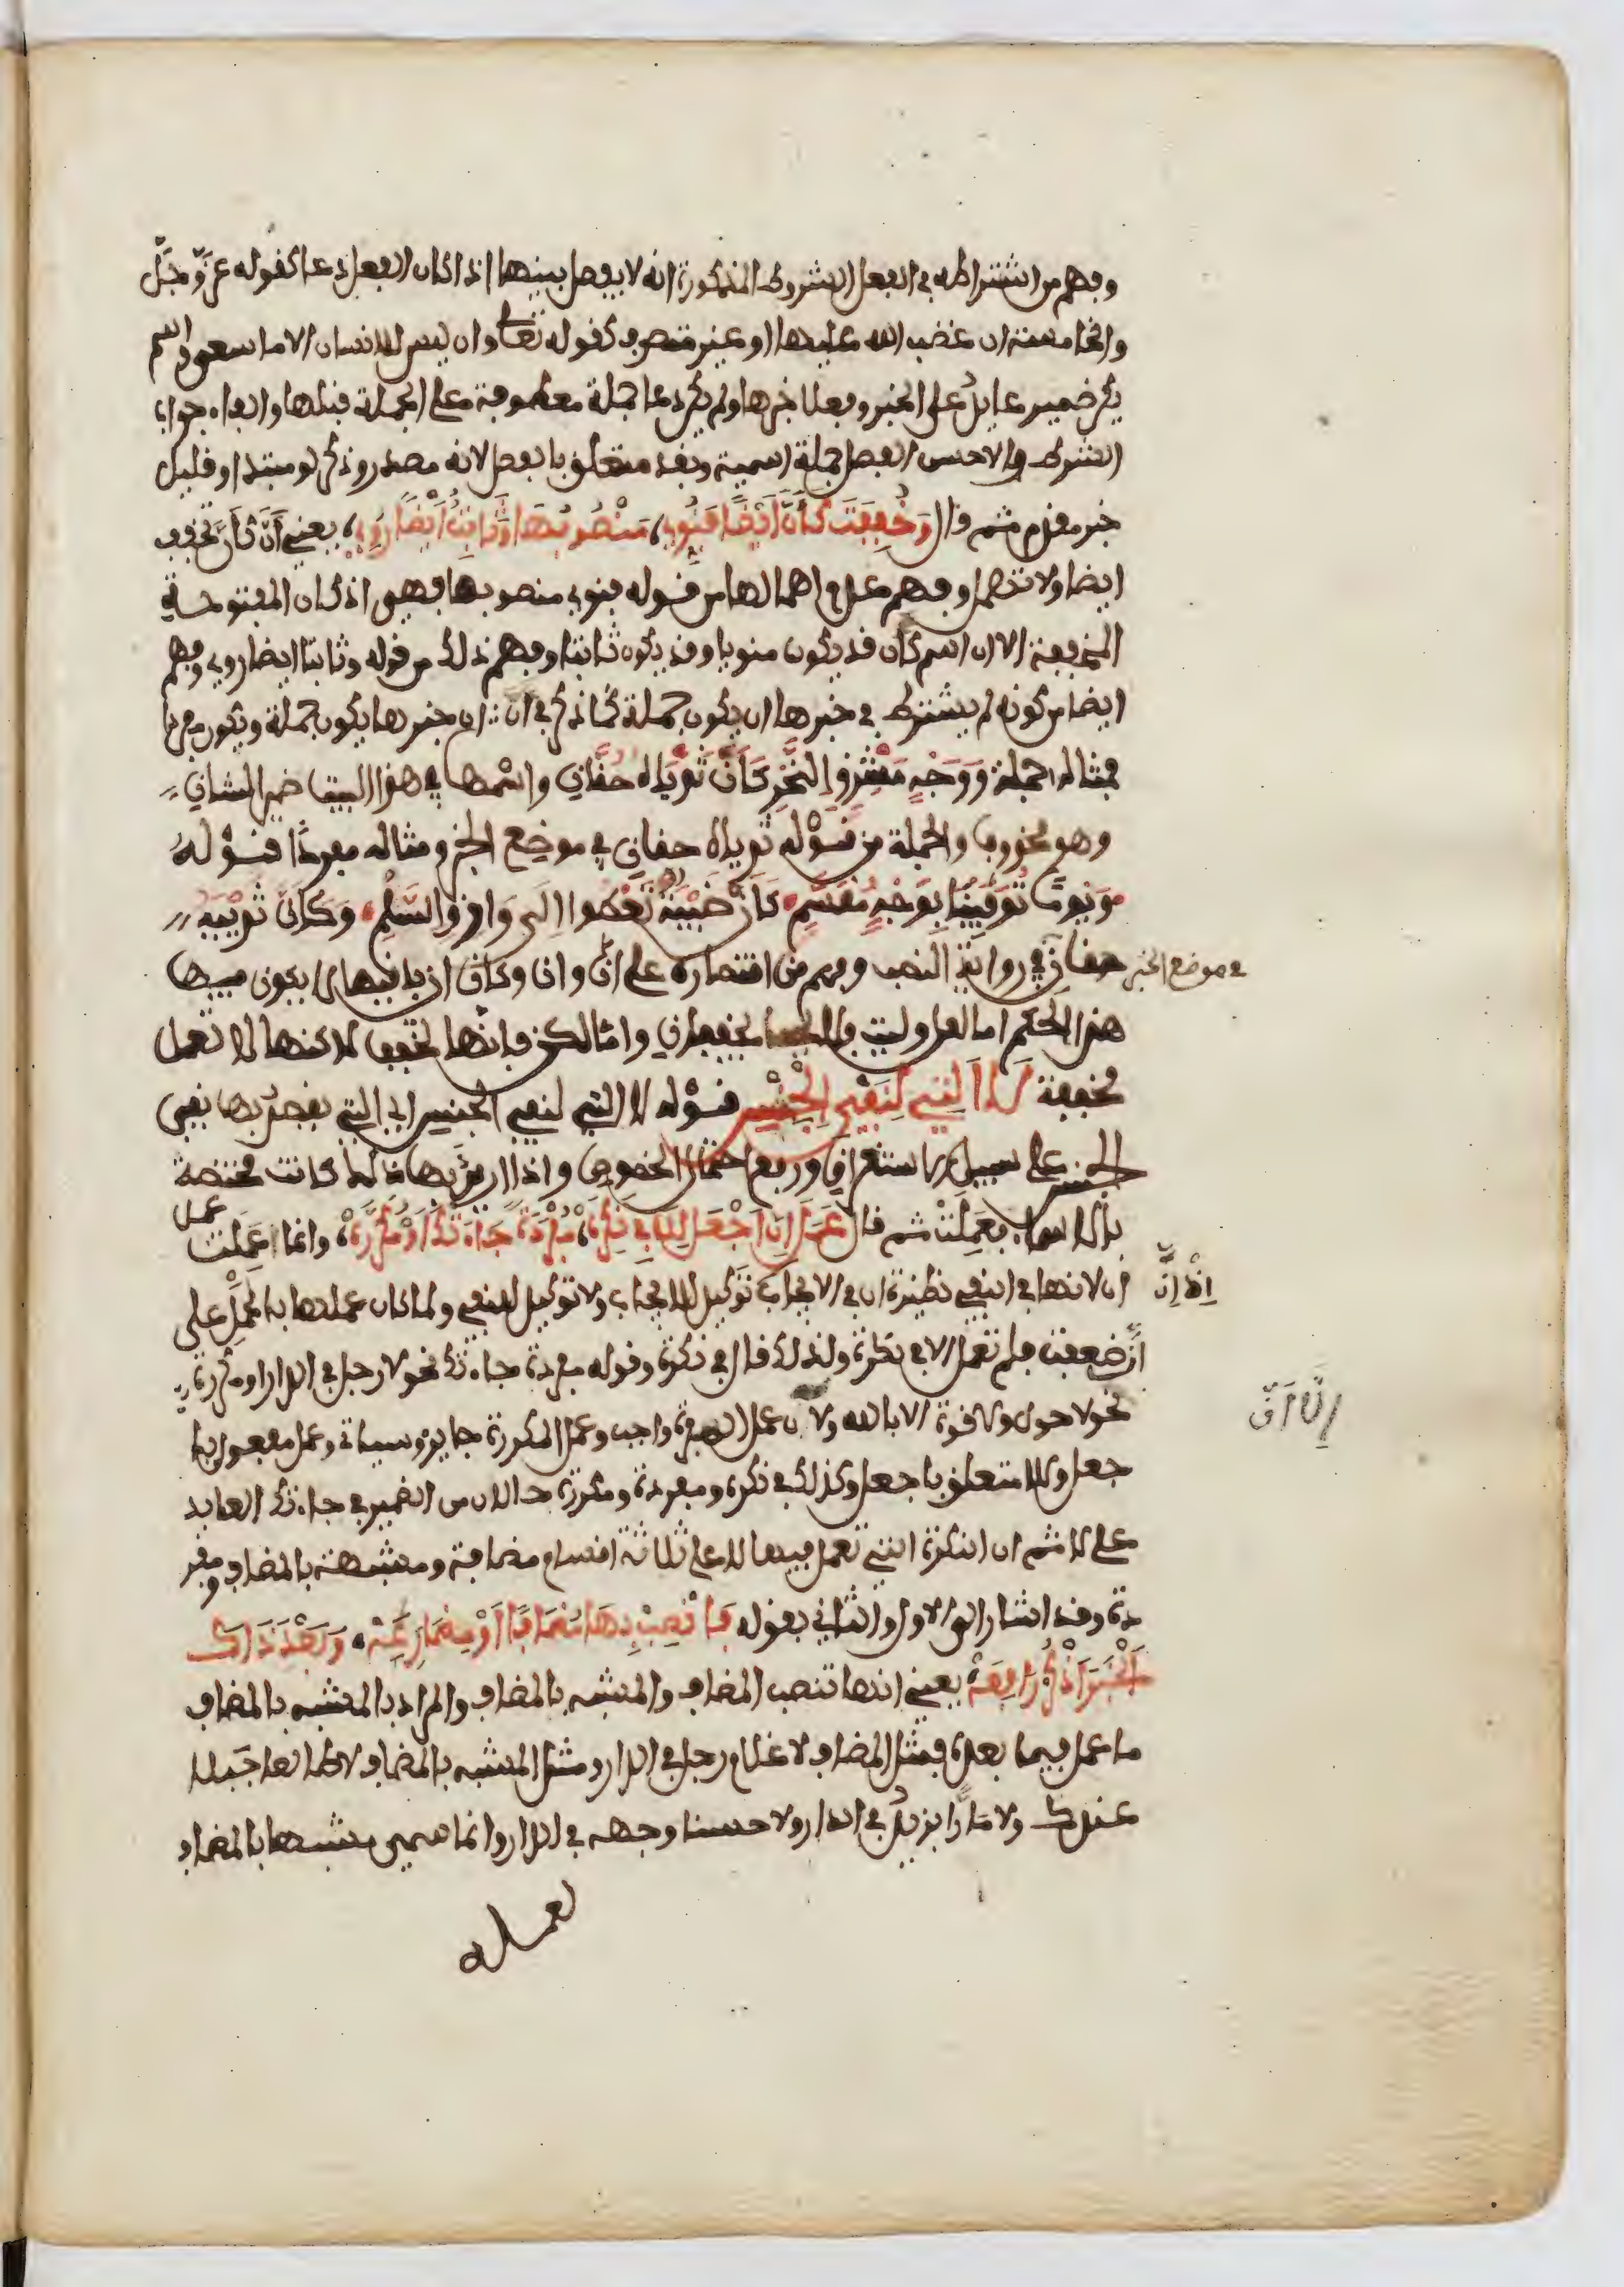 وفهم من اشتراطه في الفعل الشروط المذكورة انه لا يفصل بينهما اذا كان الفعل دعا كقوله عز وجل
والخامسة ان غضب الله عليها او غير متصرف كقوله تعالى وان ليس للانسان الا ما سعى واسم
يكن ضمير عايد على الخبر وفعلا خبرها ولم يكن دعا جملة معطوفة على الجملة قبلها والفاء جواب
الشرط والاحسن الفصل جملة اسمية وبقد متعلق بالفصل لانه مصدر وذكر لو مبتدا وقليل
خبر مقدم ثم قال وَخُفِّفَتْ كَأَنَّ أَيْضًا فَنُوِي، مَنْصُوبُهَا وَثَابِتًا أَيْضًا رُوِي، يعني أَنَّ كَأَنَّ تخفف
ايضا ولا تهمل وفهم عدم اهمالها من قوله فنوي منصوبها فهي اذ كان المفتوحة
المخففة الا ان اسم كان قد يكون منويا وقد يكون ثابتا وفهم ذلك من قوله وثابتا ايضا روي وفهم
ايضا من كونه لم يشترط في خبرها ان يكون جملة كما ذكر في ان ان خبرها يكون جملة ويكون مفردا
فمثاله جملة وَوَجْهٍ مُشْرِقِ النَّحْرِ كَأَنْ ثَدْيَاهُ حُقَّانِ واسمها في هذا البيت ضمير الشان
وهو محذوف والجملة من قوله ثدياه حقان في موضع الخبر ومثاله مفردًا قوله
وَيَوْمًا تُوَافِينَا بِوَجْهٍ مُقَسَّمٍ كَأَنْ ظَبْيَةً تَعْطُوا إِلَى وَارِقِ السَّلَمِ، وَكَأَنْ ثَدْيَيْهِ
في موضع الخبر
حقان في رواية النصب وفهم من اقتصاره على انّ وانّ وكانّ ان باقيها لا يكون فيها
هذا الحكم اما لعل وليت فلا يخففان واما لكن فانها تخفف لاكنها لا تعمل
مخففة لَا الَّتِي لِنَفْيِ الْجِنْسِ قوله لا التي لنفي الجنس اي التي يقصد بها نفي
الجنس على سبيل الاستغراق ورفع احتمال الخصوص واذا اريد بها ذلك كانت مختصة
بالاسماء فعَمِلَتْ ثم قال عَمَلَ إِنَّ اجْعَلْ لِلَا فِي نَكِرَهْ، مُفْرَدَةً جَاءَتْكَ أَوْ مُكَرَّرَهْ، وانما عَمِلت عمل
اِنَّ اِنَّ
ان لانها في النفي نظيرة ان في الايجاب توكيد للايجاب ولا توكيد للنفي ولما كان عملها بالحمل على
انّ ضعفت فلم تعمل الا في نكرة ولذلك قال في نكرة وقوله مفردة جاءتك نحو لا رجل في الدار او مكررة
نحو لا حول ولا قوة الا بالله ولا ان عمل المفردة واجب وعمل المكررة جايز وسياتي وعمل مفعول با
جعل وللا متعلق باجعل وكذلك في نكرة ومفردة ومكررة حالان من الضمير في جاءتك العايد
على لا ثم ان النكرة التي تعمل فيها لا على ثلاثة اقسام مضافة ومشبهة بالمضاف ومفر
دة وقد اشار الى الاول والثاني بقوله فَانْصِبْ بِهَا مُضَافًا أَوْ مُضَارِعَهْ، وَبَعْدَ ذَاكَ
الْخَبَرَ اذْكُرْ رَافِعَهْ يعني انها تنصب المضاف والمشبه بالمضاف والمراد بالمشبه بالمضاف
ما عمل فيما بعده فمثل المضاف لا غلام رجل في الدار ومثل المشبه بالمضاف لا طالعا جبلا
عندك ولا مارا بزيد في الدار ولا حسنا وجهه في الدار وانما سمي مشبها بالمضاف
لعمله